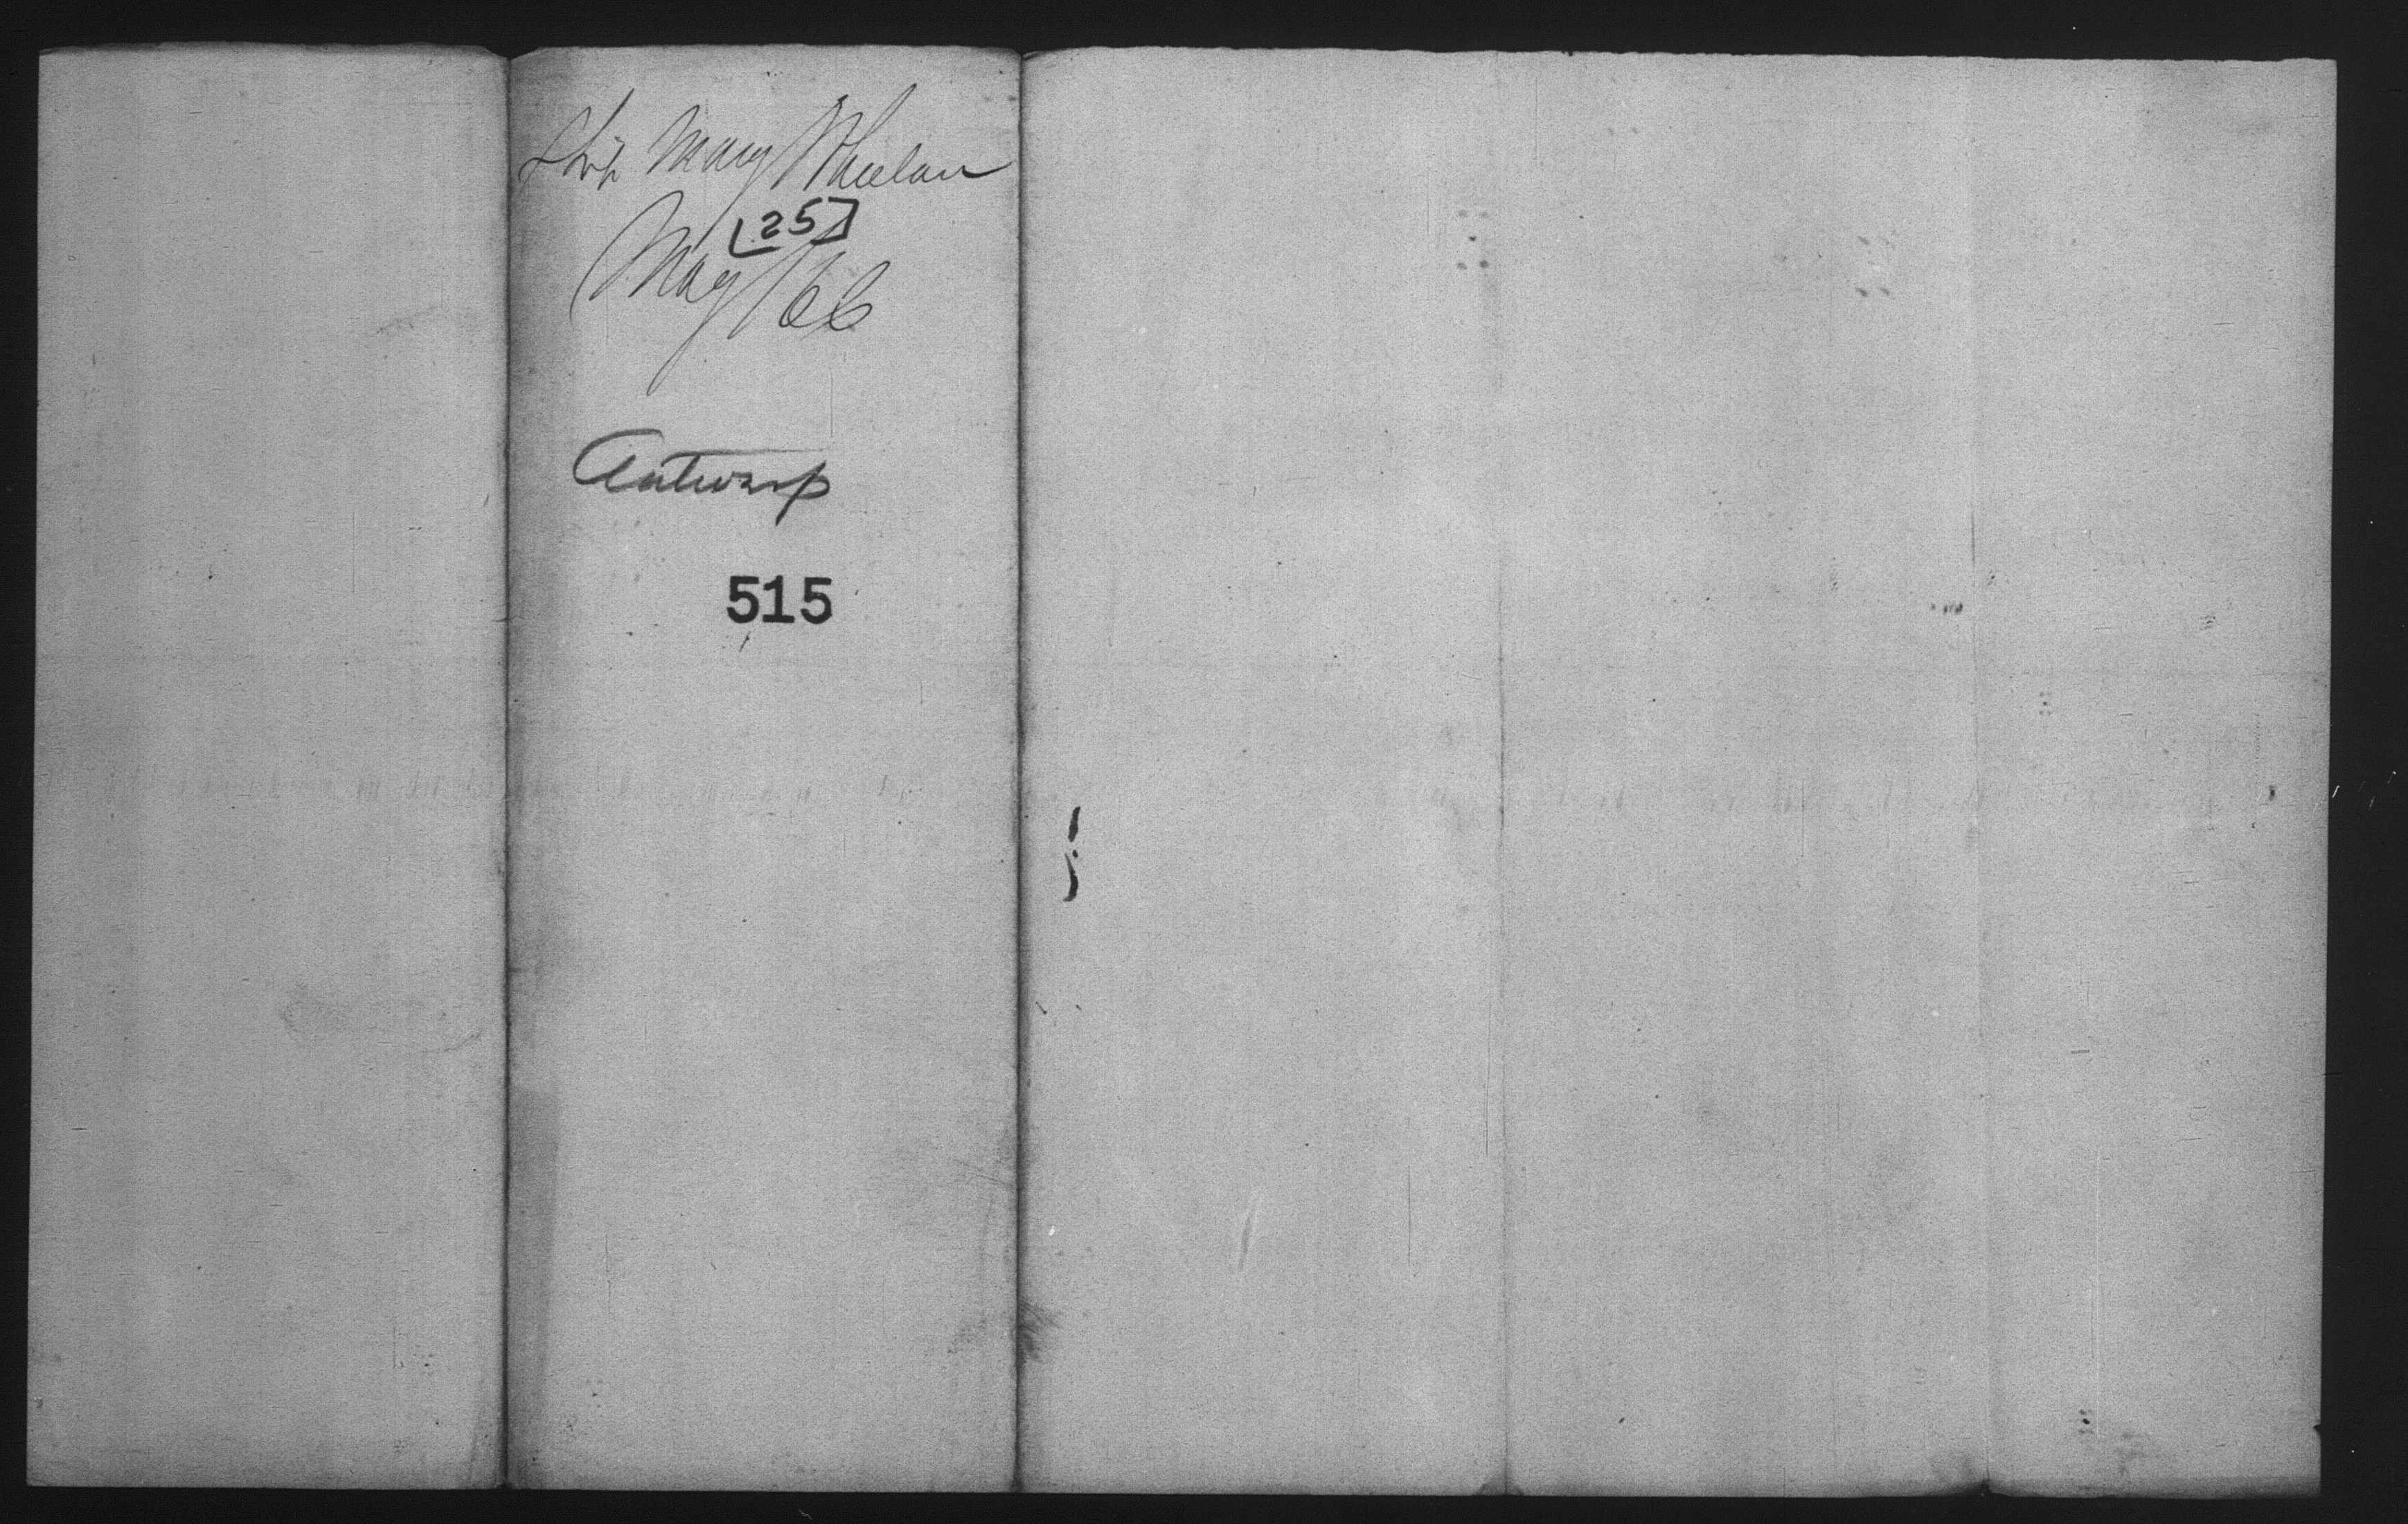 Ship Mary Whelan
[25]
May/66
Antwerp
515